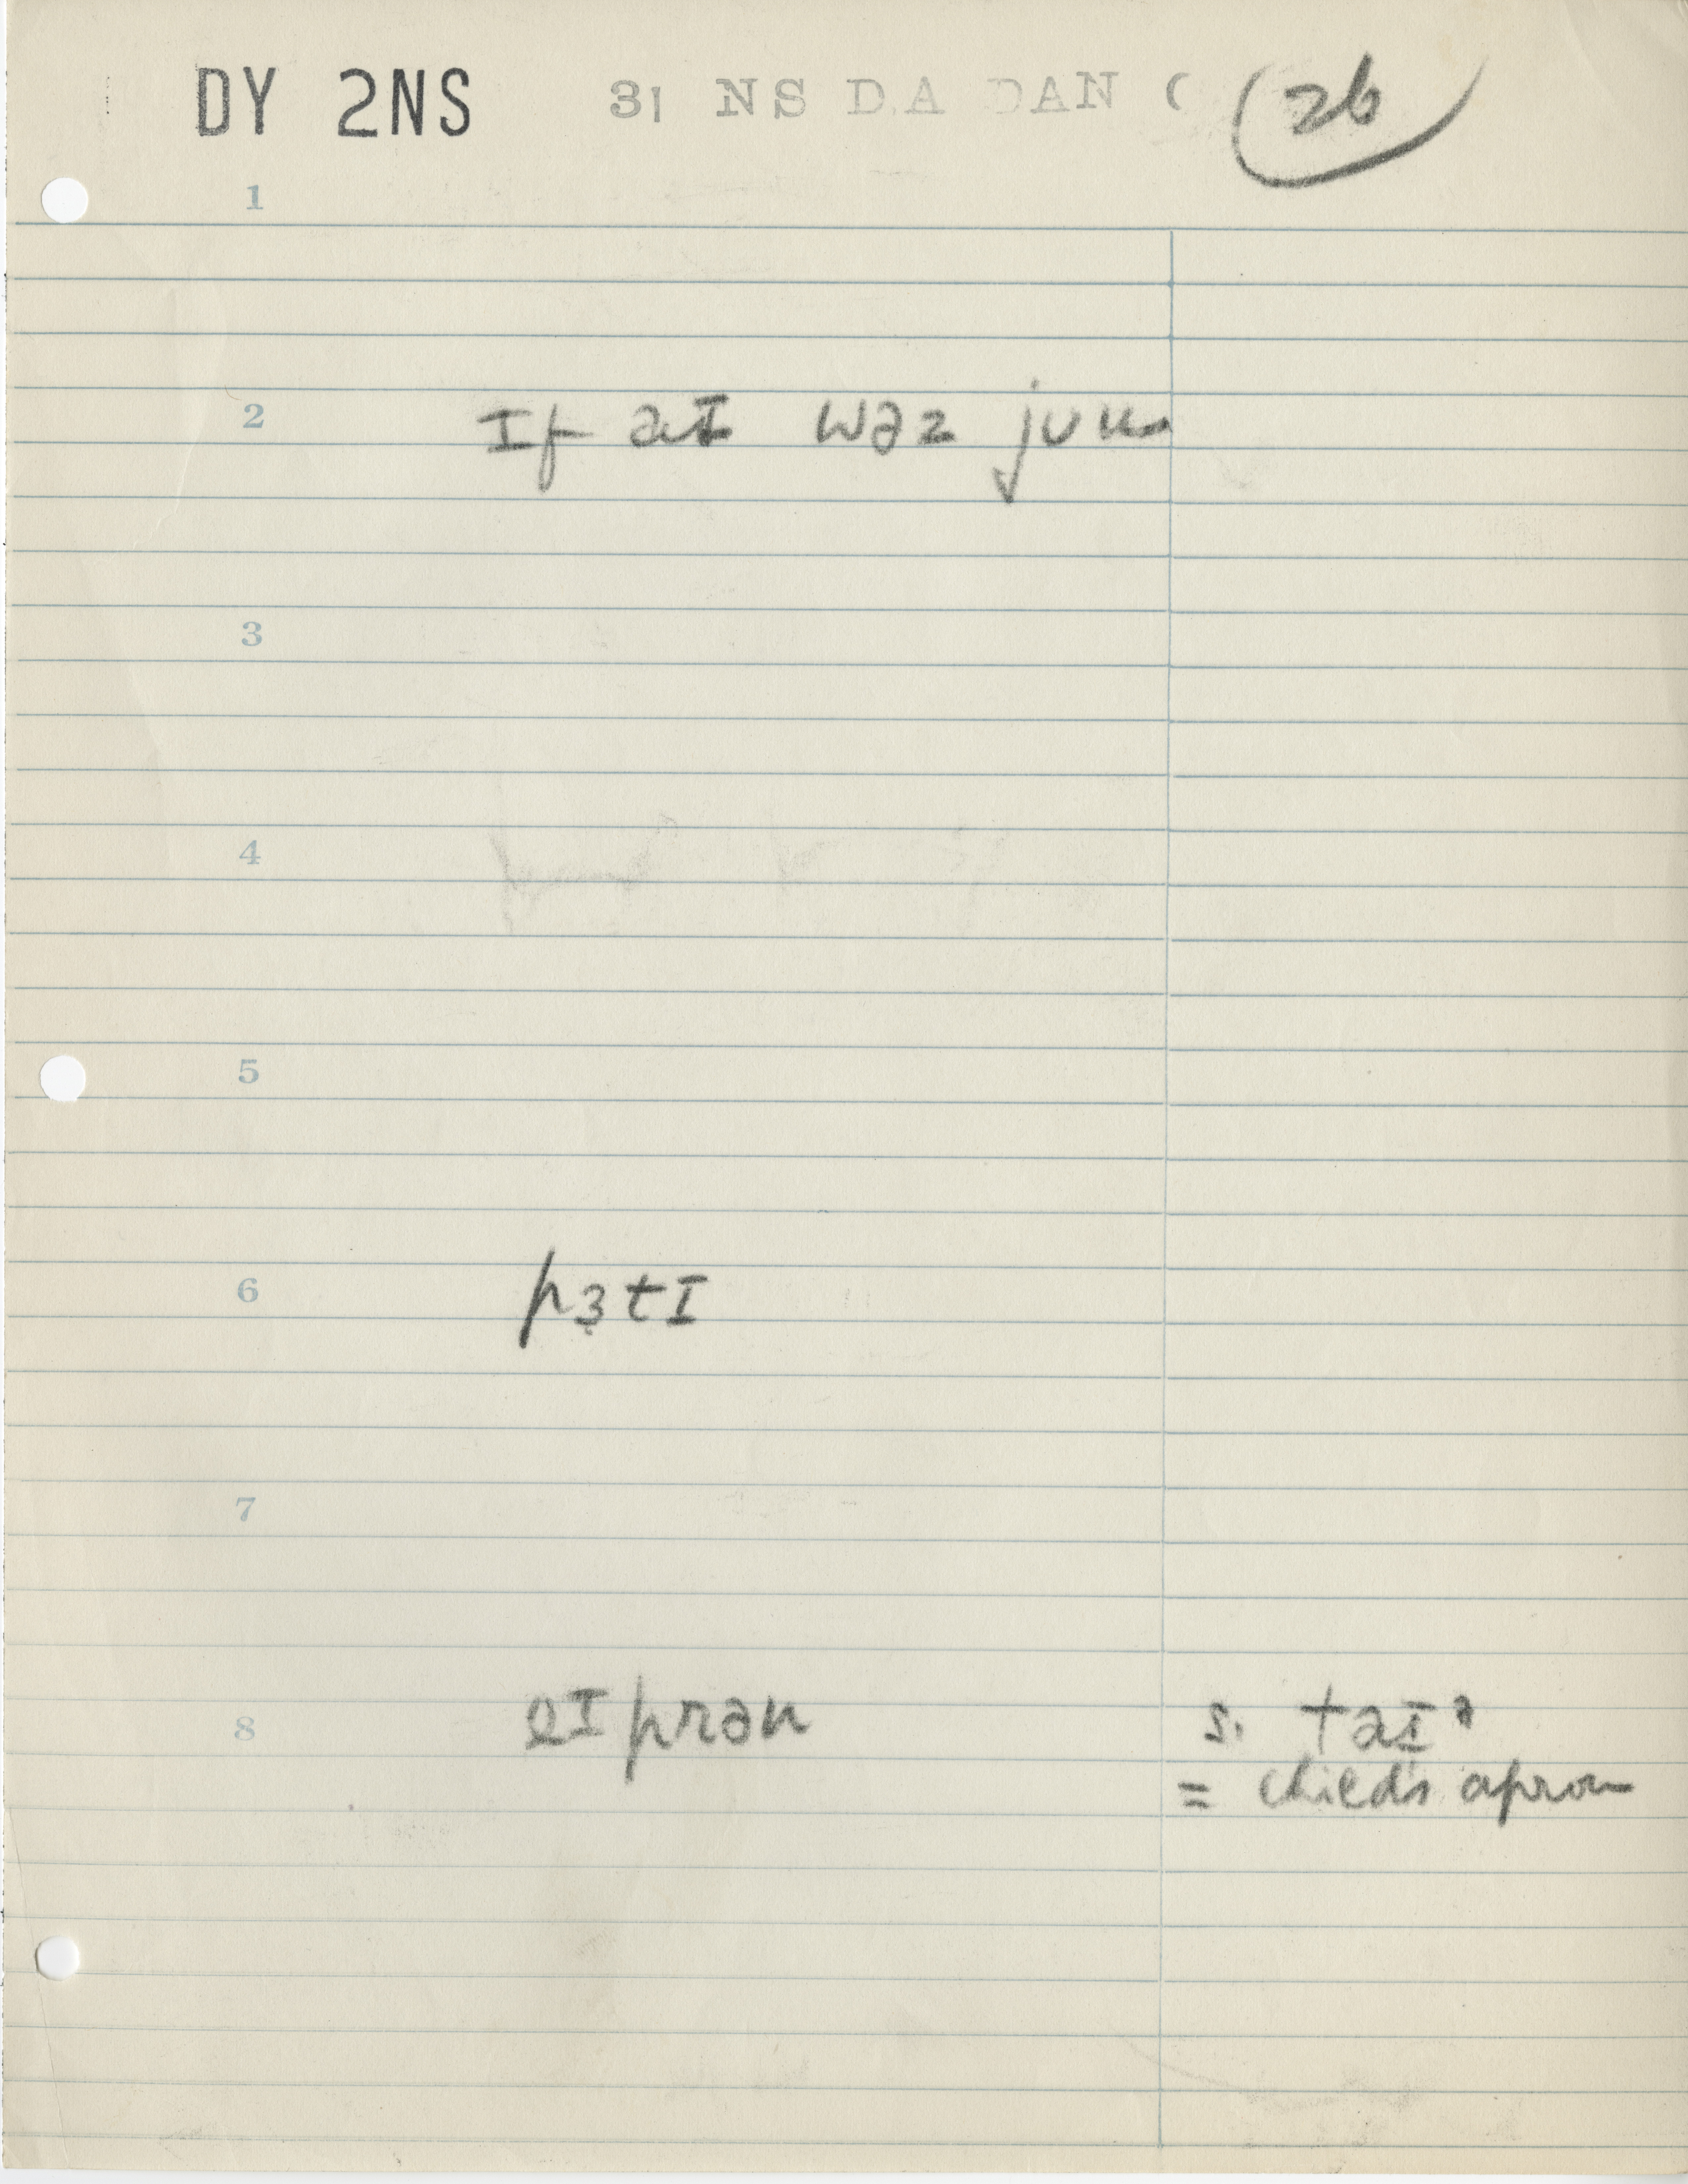 DY 2NS 31 NS DA DAN C 26
1
2 ɪf aɪ wəz jʊu
3
4
5
6 pɜ̣tɪ
7
8 eɪprən s. taɪᵊ
= child's apron